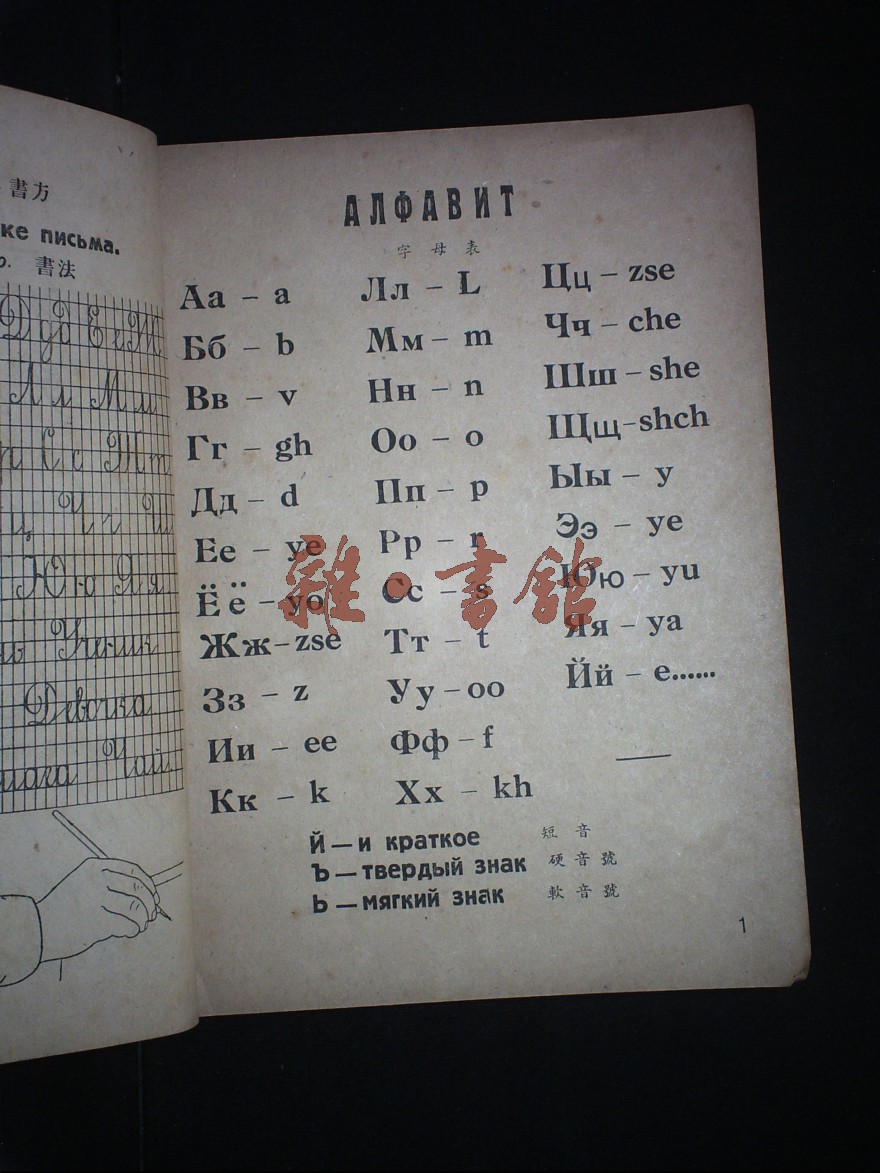 書方
ке письма.
書法
Д д Е е Ж
Л л М м
С с Т т
ц Ч ч Ш
Ю ю Я я
Ученик
Девочка
Чай
АЛФАВИТ
字母表
Аа – a
Бб – b
Вв – v
Гг – gh
Дд – d
Ее – ye
Ёё – yo
Жж – zse
Зз – z
Ии – ee
Кк – k
Лл – L
Мм – m
Нн – n
Оо – o
Пп – p
Рр – r
Сс – s
Тт – t
Уу – oo
Фф – f
Хх – kh
Цц – zse
Чч – che
Шш – she
Щщ – shch
Ыы – y
Ээ – ye
Юю – yu
Яя – ya
Йй – e......
Й — и краткое 短音
Ъ — твердый знак 硬音號
Ь — мягкий знак 軟音號
1
雜·書館